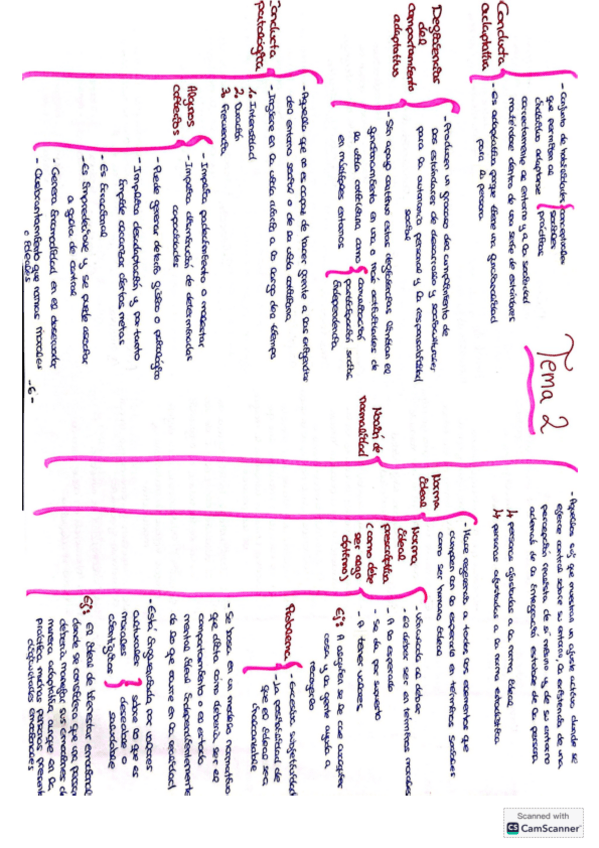 Tema 2
Conducta
adaptativa
- Conjunto de habilidades
conceptuales
sociales
prácticas
que permiten al
individuo adaptarse
correctamente al entorno y a la sociedad
moviéndose dentro de una serie de estándares
- Es adaptativa porque tiene una funcionalidad
para la persona
Deficiencias
del
comportamiento
adaptativo
- Producen un fracaso del cumplimiento de
los estándares de desarrollo y socioculturales
para la autonomía personal y la responsabilidad
social
- Sin apoyo continuo estas deficiencias limitan el
funcionamiento en una o más actividades de
la vida cotidiana como
comunicación
participación social
independencia
en múltiples entornos
Conducta
patológica
- Aquella que no es capaz de hacer frente a las exigencias
del entorno social o de la vida cotidiana
- Influye en la vida diaria a lo largo del tiempo
1. Intensidad
2. Duración
3. Frecuencia
Algunos
criterios
- Implica padecimiento o malestar
- Implica disminución de determinadas
capacidades
- Puede generar deterioro físico o psicológico
- Implica desadaptación y por tanto
impide alcanzar ciertas metas
- Es irracional
- Es impredecible y se puede asociar
a falta de control
- Genera incomodidad en el observador
- Quebrantamiento de normas morales
o ideales
-6-
Noción de
normalidad
- Aquellos suj que muestran un ajuste activo donde se
ejerce control sobre su entorno, la existencia de una
percepción realista de sí mismo y de su entorno
además de la integración estable de la persona
↳ personas ajustadas a la norma ideal
↳ personas ajustadas a la norma estadística
Norma
ideal
- Hace referencia a todos los elementos que
cumplen con lo esperado en términos sociales
como ser humano ideal
Norma
ideal
prescriptiva
(como debe
ser algo
óptimo)
- Vinculada al deber
- El deber ser en términos morales
- A lo esperado
- Se da por supuesto
- A tener valores
Ej: A alguien se le cae cualquier
cosa y la gente ayuda a
recogerlo
Problema
- Excesiva subjetividad
- La posibilidad de
que el ideal sea
inalcanzable
- Se basa en un modelo normativo
que dicta cómo debería ser el
comportamiento o el estado
mental ideal independientemente
de lo que ocurre en la realidad
- Está influenciada por valores
culturales
morales
científicos
sobre lo que es
deseable o
saludable
Ej: El ideal de bienestar emocional
donde se considera que una persona
debería manejar sus emociones de
manera adaptativa aunque en la
práctica muchas personas presentan
dificultades emocionales
Scanned with
CS CamScanner